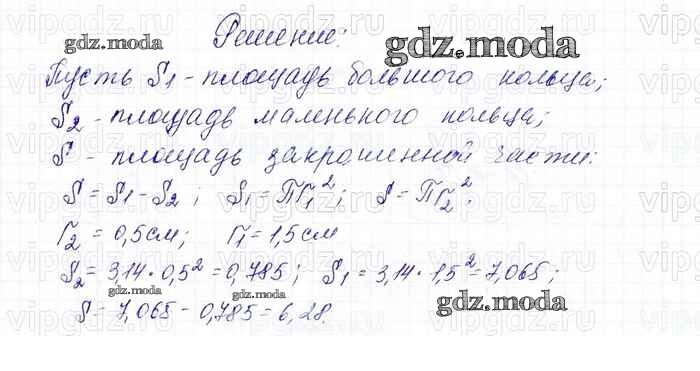 Решение:
gdz.moda
gdz.moda
Пусть S1 - площадь большого кольца;
S2 - площадь маленького кольца;
S - площадь закрашенной части:
S = S1 - S2 ; S1 = Пr1²; S = Пr2².
r2 = 0,5 см; r1 = 1,5 см
gdz.moda
S2 = 3,14 · 0,5² = 0,785 ; S1 = 3,14 · 1,5² = 7,065 ;
gdz.moda
gdz.moda
S = 7,065 - 0,785 = 6,28.
vipgdz.ru